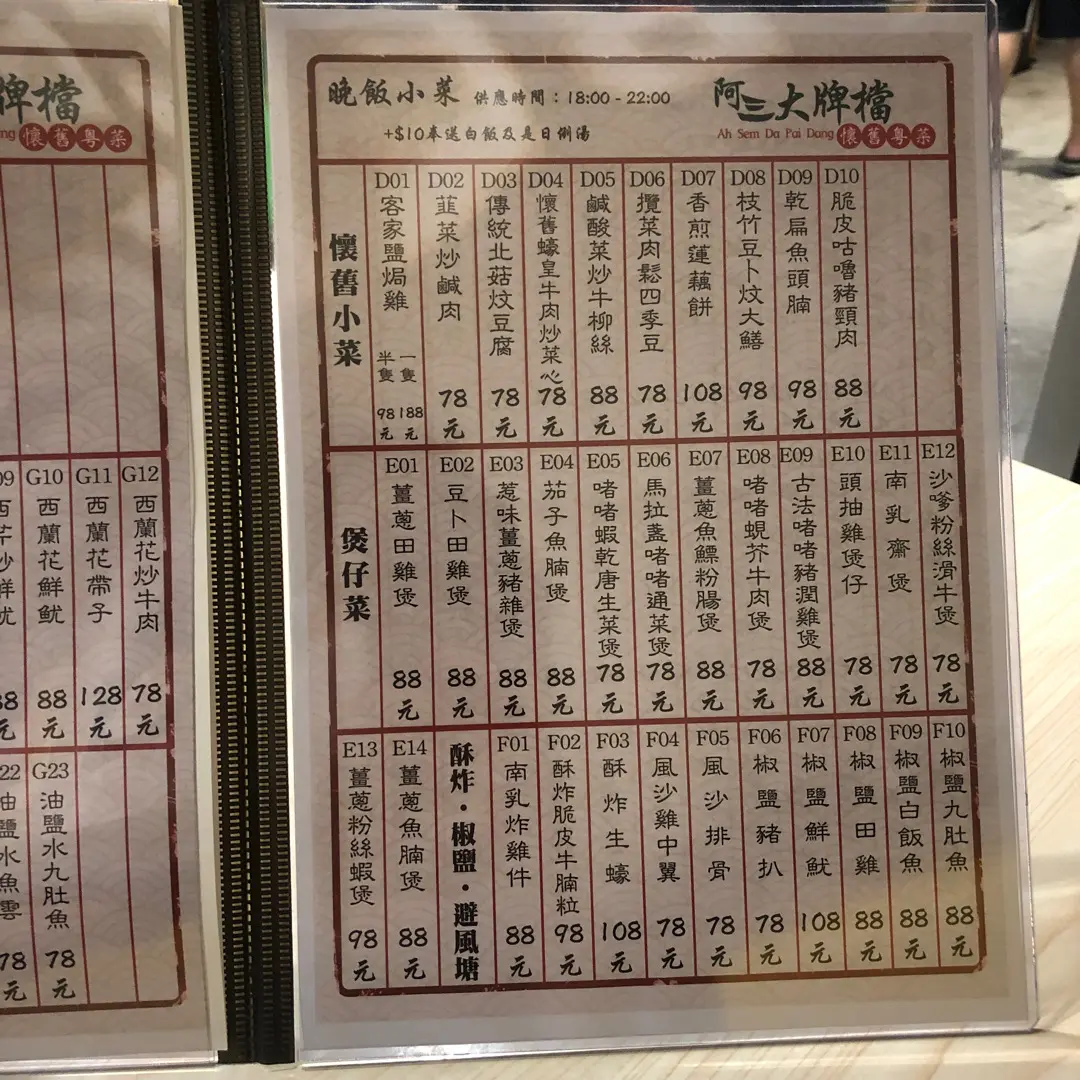 牌檔
ng 懷舊粵菜
G10 西蘭花鮮魷 88元
G11 西蘭花帶子 128元
G12 西蘭花炒牛肉 78元
油鹽水魚雲 78元
G23 油鹽水九肚魚 78元
晚飯小菜 供應時間：18:00 - 22:00
+$10奉送白飯及是日例湯
阿三大牌檔
Ah Sem Da Pai Dang 懷舊粵菜
懷舊小菜
D01 客家鹽焗雞 半隻 98元 一隻 188元
D02 韮菜炒鹹肉 78元
D03 傳統北菇炆豆腐 78元
D04 懷舊蠔皇牛肉炒菜心 78元
D05 鹹酸菜炒牛柳絲 88元
D06 攬菜肉鬆四季豆 78元
D07 香煎蓮藕餅 108元
D08 枝竹豆卜炆大鱔 98元
D09 乾扁魚頭腩 98元
D10 脆皮咕嚕豬頸肉 88元
煲仔菜
E01 薑蔥田雞煲 88元
E02 豆卜田雞煲 88元
E03 惹味薑蔥豬雜煲 88元
E04 茄子魚腩煲 88元
E05 啫啫蝦乾唐生菜煲 78元
E06 馬拉盞啫啫通菜煲 78元
E07 薑蔥魚鰾粉腸煲 88元
E08 啫啫蜆芥牛肉煲 78元
E09 古法啫啫豬潤雞煲 88元
E10 頭抽雞煲仔 78元
E11 南乳齋煲 78元
E12 沙嗲粉絲滑牛煲 78元
E13 薑蔥粉絲蝦煲 98元
E14 薑蔥魚腩煲 88元
酥炸・椒鹽・避風塘
F01 南乳炸雞件 88元
F02 酥炸脆皮牛腩粒 98元
F03 酥炸生蠔 108元
F04 風沙雞中翼 78元
F05 風沙排骨 78元
F06 椒鹽豬扒 78元
F07 椒鹽鮮魷 108元
F08 椒鹽田雞 88元
F09 椒鹽白飯魚 88元
F10 椒鹽九肚魚 88元